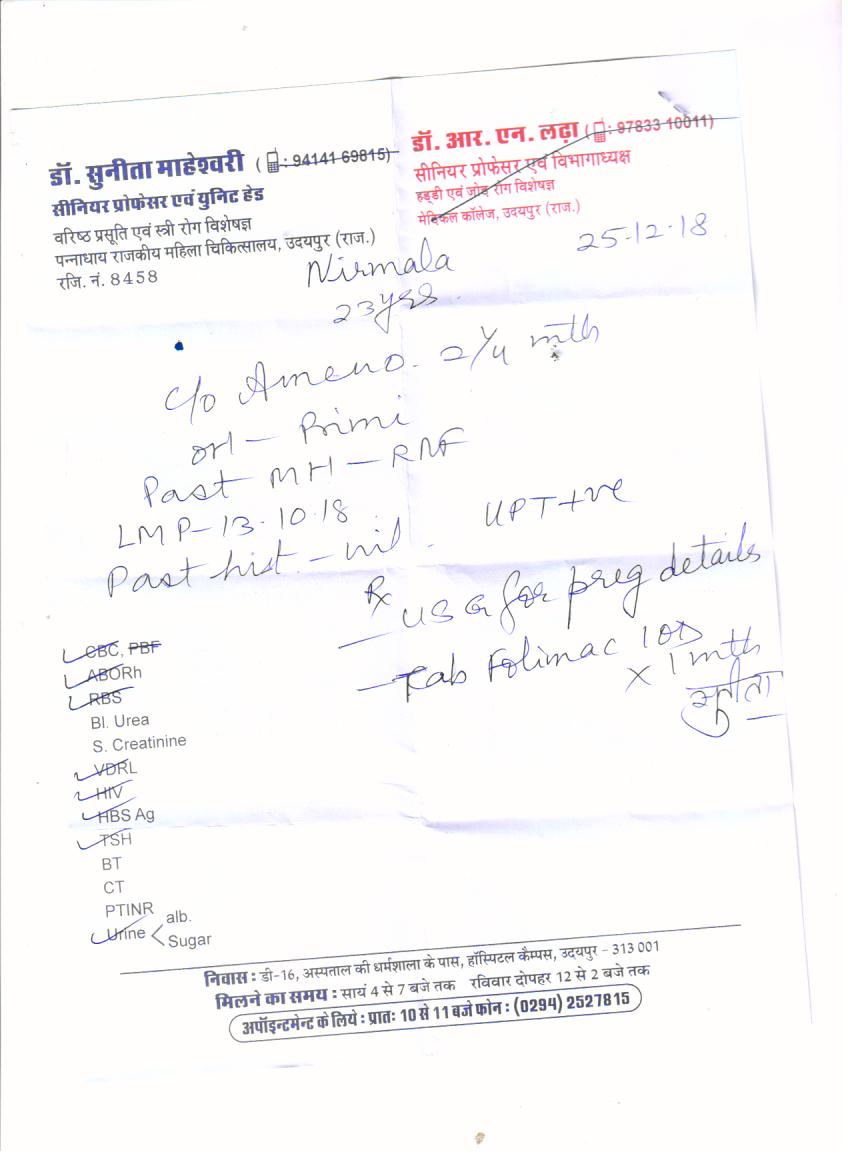 डॉ. सुनीता माहेश्वरी ( : 94141-69815)
सीनियर प्रोफेसर एवं युनिट हेड
वरिष्ठ प्रसूति एवं स्त्री रोग विशेषज्ञ
पन्नाधाय राजकीय महिला चिकित्सालय, उदयपुर (राज.)
रजि. नं. 8458
डॉ. आर. एन. लढ़ा ( : 97833-10011)
सीनियर प्रोफेसर एवं विभागाध्यक्ष
हड्डी एवं जोड़ रोग विशेषज्ञ
मेडिकल कॉलेज, उदयपुर (राज.)
25-12-18
Nirmala
23yrs.
C/o Ameno. 2 1/4 mth
OH - Primi
Past MH - RNF
LMP-13.10.18
UPT +ve
Past hist. - nil.
Rx
USG for preg details
- Tab Folimac 1 OD
x 1 mth
सुनीता
CBC, PBF
ABORh
RBS
Bl. Urea
S. Creatinine
VDRL
HIV
HBS Ag
TSH
BT
CT
PTINR
Urine < alb.
Sugar
निवास : डी-16, अस्पताल की धर्मशाला के पास, हॉस्पिटल कैम्पस, उदयपुर - 313 001
मिलने का समय : सायं 4 से 7 बजे तक रविवार दोपहर 12 से 2 बजे तक
अपॉइन्टमेन्ट के लिये : प्रातः 10 से 11 बजे फोन : (0294) 2527815